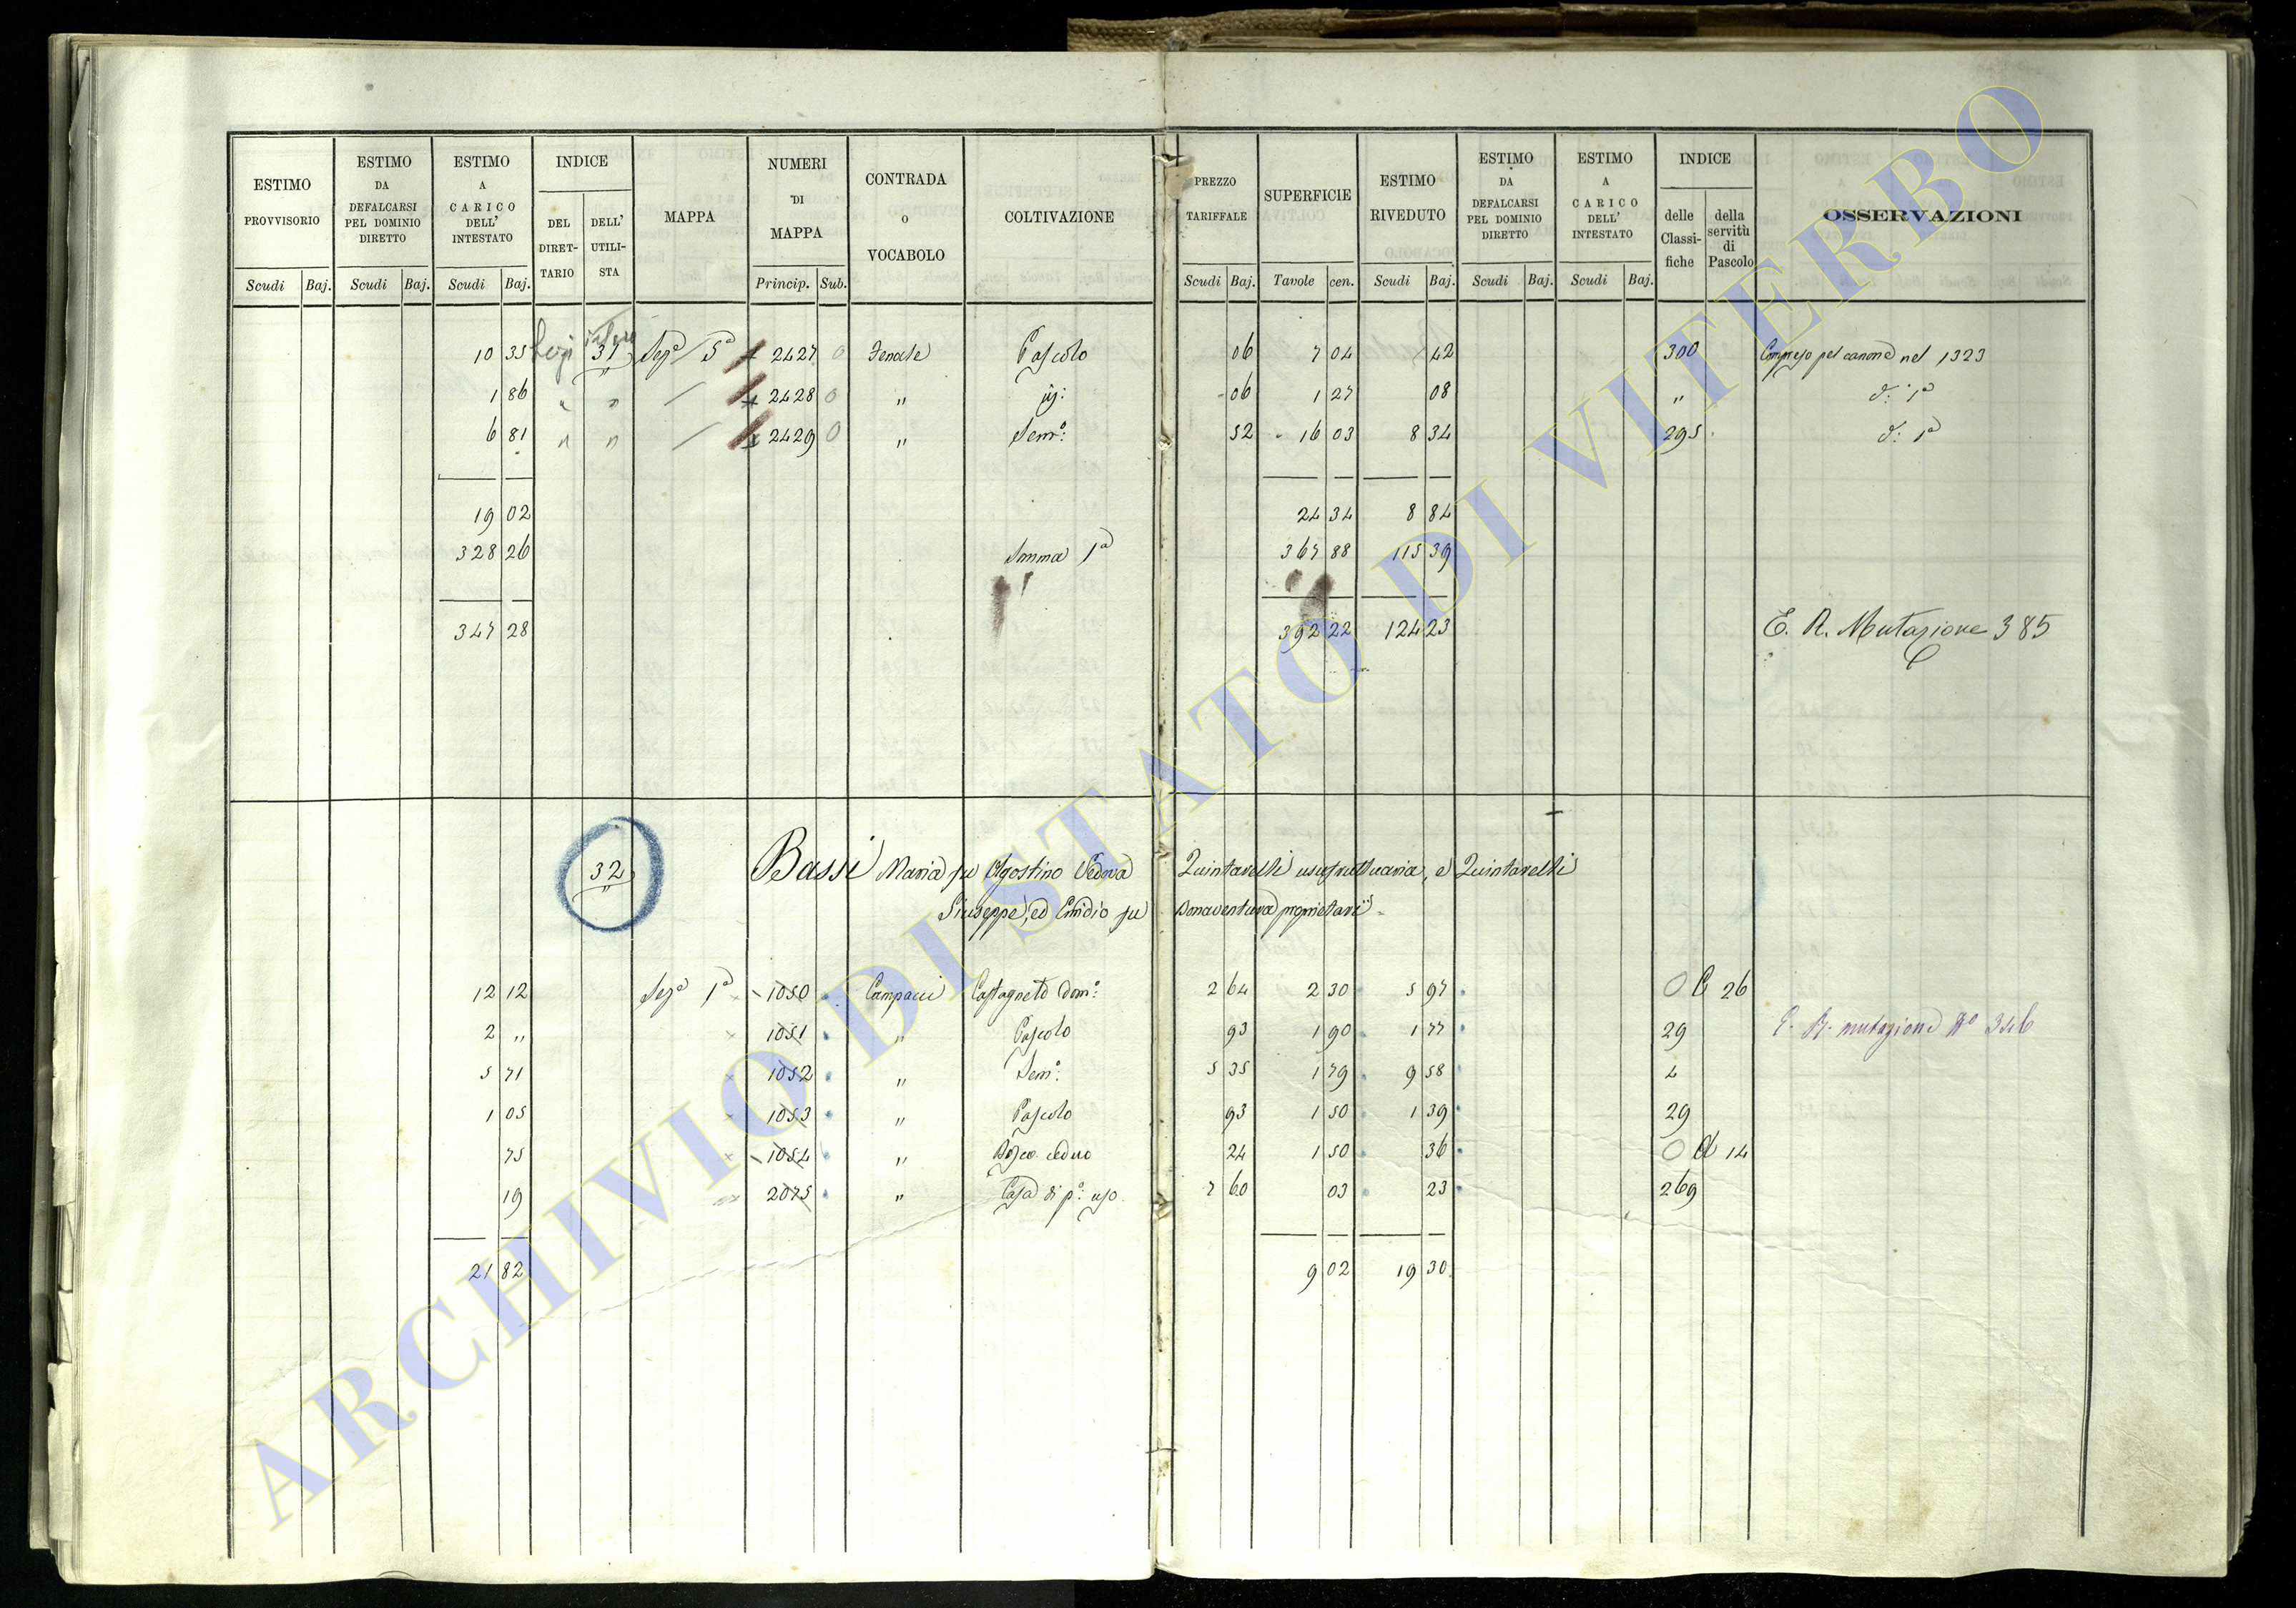 ESTIMO PROVVISORIO Scudi Baj. | ESTIMO DA DEFALCARSI PEL DOMINIO DIRETTO Scudi Baj. | ESTIMO A CARICO DELL' INTESTATO Scudi Baj. | INDICE DEL DIRET-TARIO DELL' UTILI-STA | MAPPA | NUMERI DI MAPPA Princip. Sub. | CONTRADA O VOCABOLO | COLTIVAZIONE | PREZZO TARIFFALE Scudi Baj. | SUPERFICIE Tavole cen. | ESTIMO RIVEDUTO Scudi Baj. | ESTIMO DA DEFALCARSI PEL DOMINIO DIRETTO Scudi Baj. | ESTIMO A CARICO DELL' INTESTATO Scudi Baj. | INDICE delle Classi-fiche della servitù di Pascolo | OSSERVAZIONI
10 35 31 Sez.a 5a 2427 0 Fenale Pascolo 06 7 04 42 300 Compreso pel canone nel 1323
1 86 " " 2428 0 " id: 06 1 27 08 " d: 1a
6 81 " " 2429 0 " Sem.o: 52 16 03 8 34 295 d: 1a
19 02 24 34 8 84
328 26 Somma 1a 367 88 115 39
347 28 392 22 124 23 E. R. Mutazione 385
32 Bassi Maria fu Agostino Vedova Quintarelli usufruttuaria, e Quintarelli
Giuseppe, ed Emidio fu Bonaventura proprietari
12 12 Sez.a 1a 1050 Campacci Castagneto dom.o: 2 64 2 30 5 97 0 C 26
2 " 1051 " Pascolo 93 1 90 1 77 29 E. R. mutazione No 346
5 71 1052 " Sem.o: 5 35 1 79 9 58 4
1 05 1053 " Pascolo 93 1 50 1 39 29
75 1054 " Bosco ceduo 24 1 50 36 0 A 14
19 2075 " Casa di p.o: uso 7 60 03 23 269
21 82 9 02 19 30
ARCHIVIO DI STATO DI VITERBO